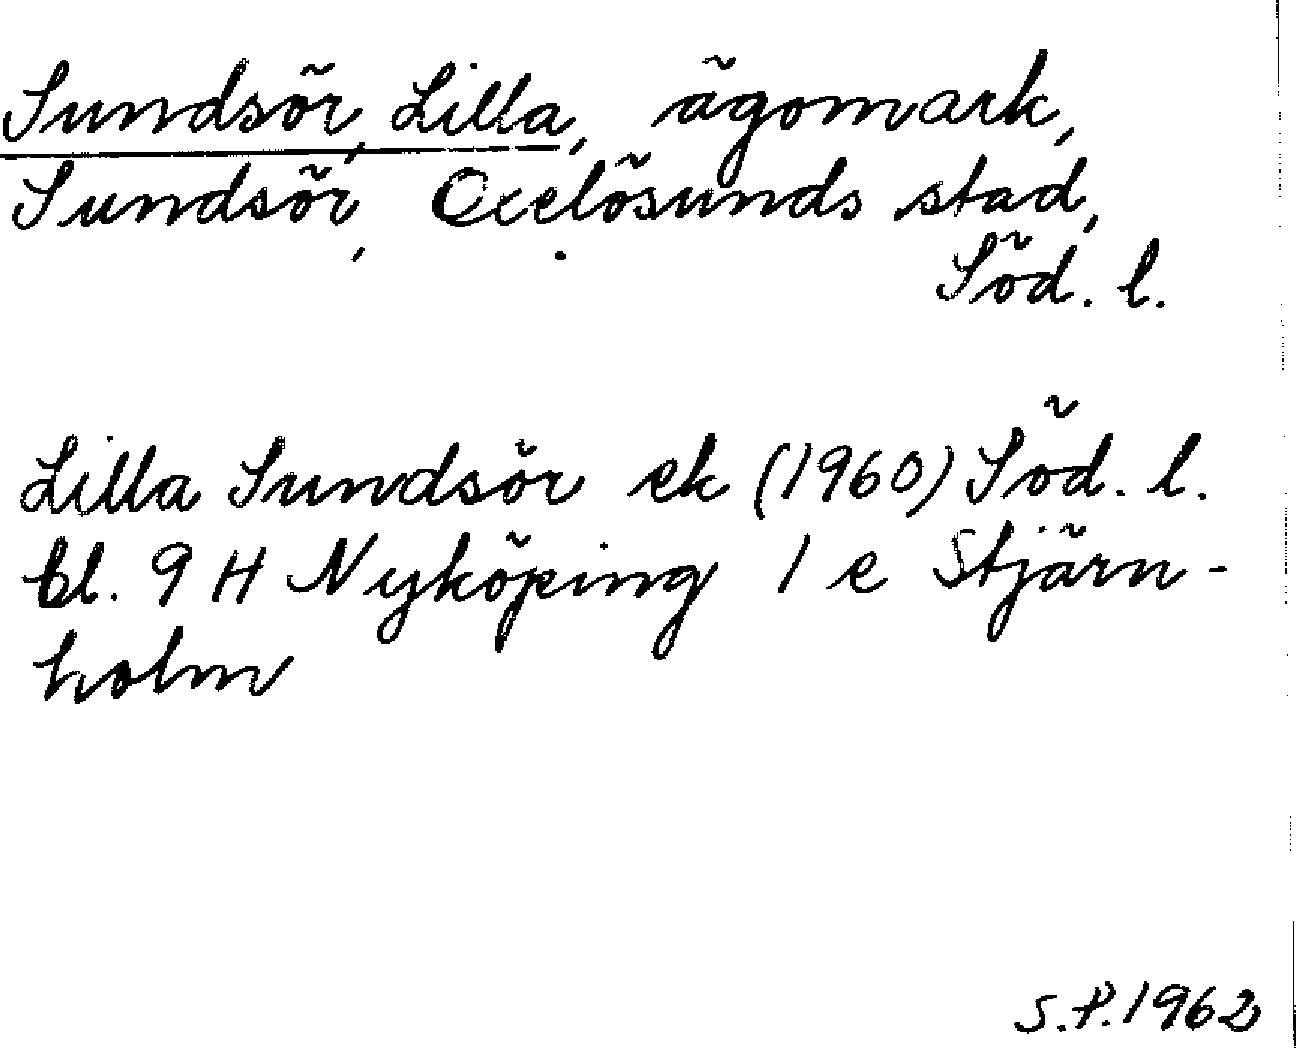 Sundsör, Lilla, ägomark,
Sundsör, Oxelösunds stad,
Söd. l.
Lilla Sundsör ek (1960) Söd. l.
bl. 9 H Nyköping 1 e Stjärn-
holm
S.P. 1962